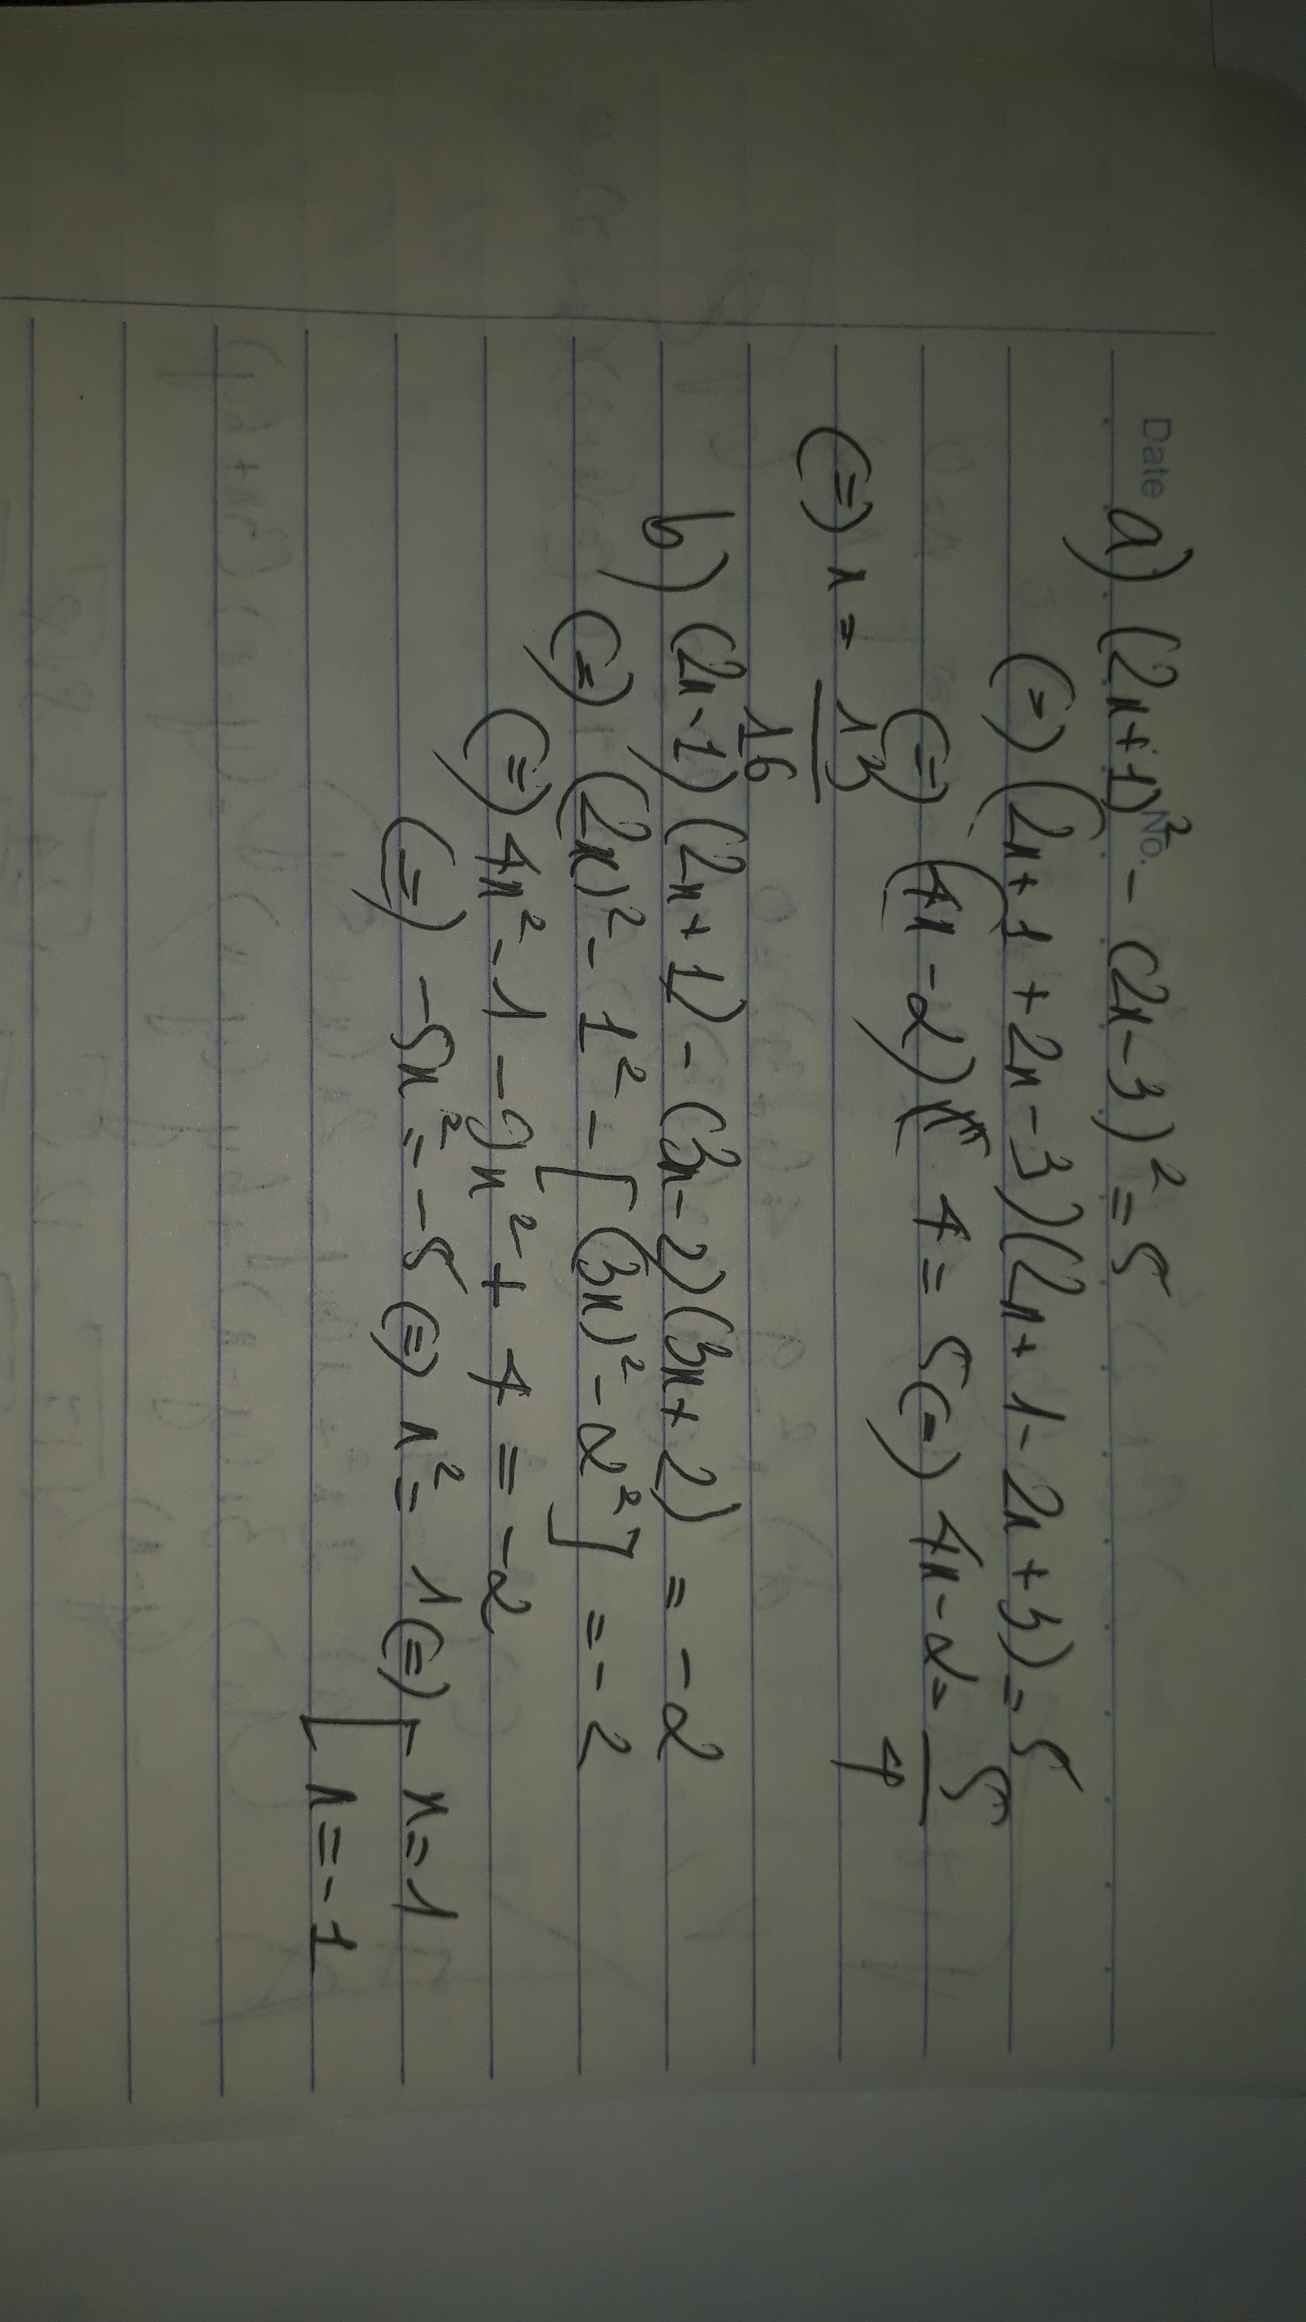 Date No.
a) (2x+1)² - (2x-3)² = 5
(=) (2x+1+2x-3)(2x+1-2x+3) = 5
(=) (4x-2) 4 = 5 (=) 4x-2 = 5/4
(=) x = 13/16
b) (2x-1)(2x+1) - (3x-2)(3x+2) = -2
(=) (2x)² - 1² - [(3x)² - 2²] = -2
(=) 4x² - 1 - 9x² + 4 = -2
(=) -5x² = -5 (=) x² = 1 (=) [ x=1
x=-1